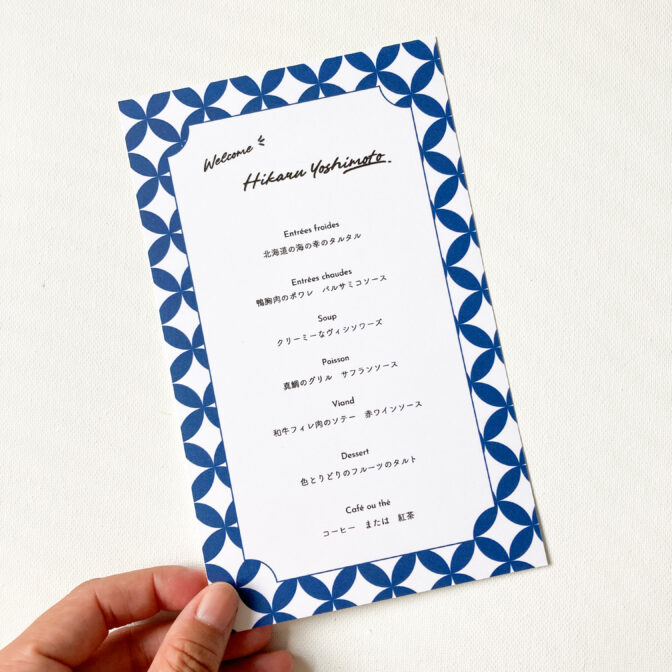 Welcome
Hikaru Yoshimoto.
Entrées froides
北海道の海の幸のタルタル
Entrées chaudes
鴨胸肉のポワレ　バルサミコソース
Soup
クリーミーなヴィシソワーズ
Poisson
真鯛のグリル　サフランソース
Viand
和牛フィレ肉のソテー　赤ワインソース
Dessert
色とりどりのフルーツのタルト
Café ou thé
コーヒー　または　紅茶